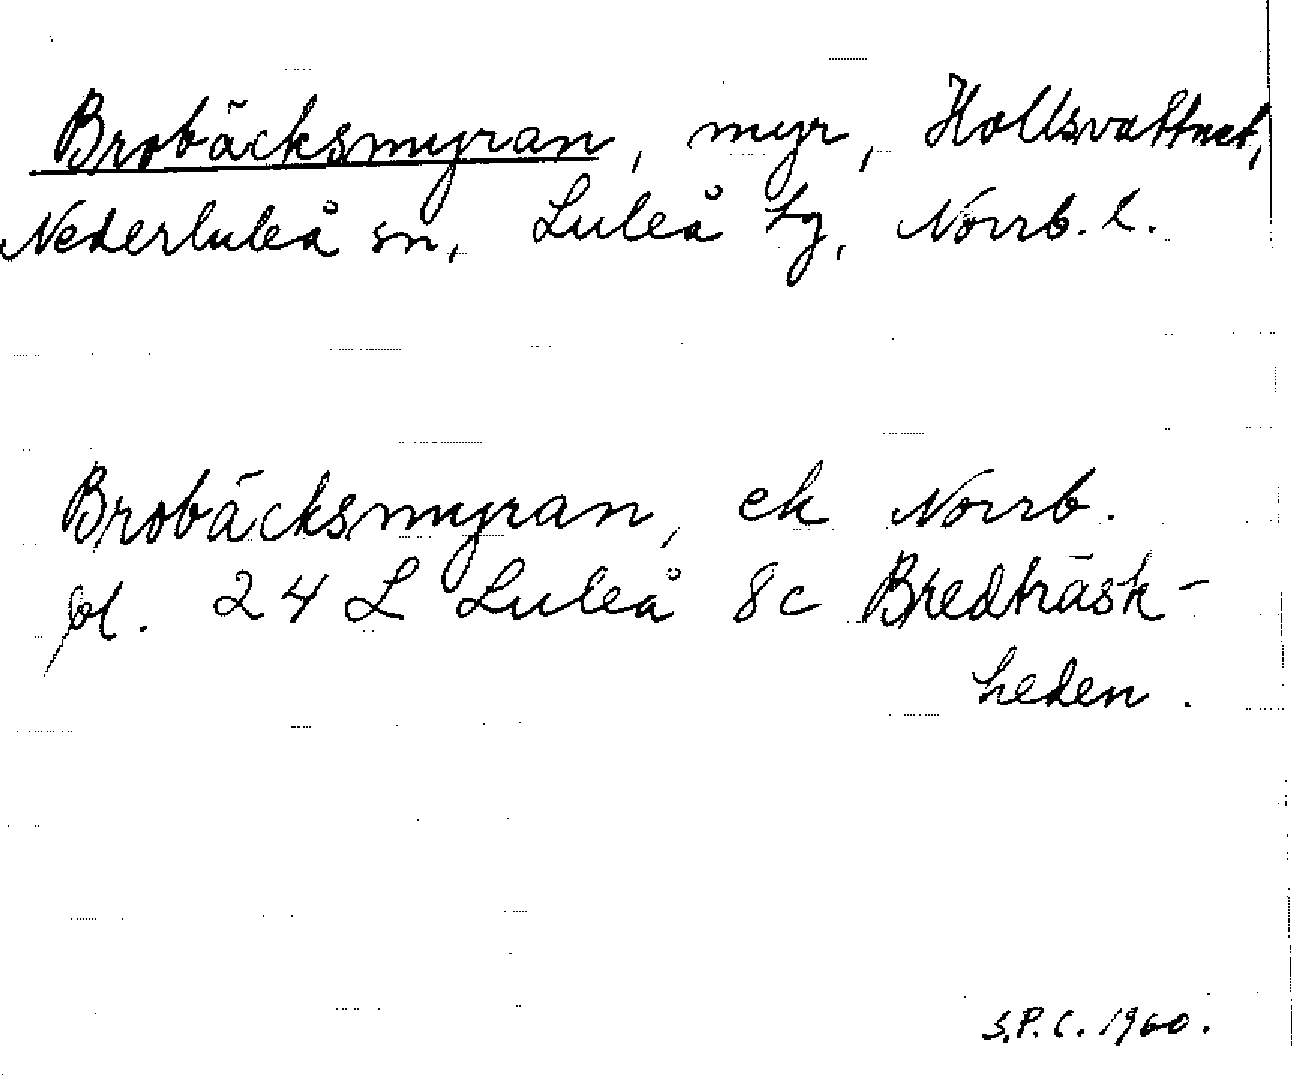 Brobäcksmyran, myr, Hollsvattnet,
Nederluleå sn, Luleå tg, Norrb. l.
Brobäcksmyran, ek Norrb.
bl. 24 L Luleå 8c Bredträsk-
heden.
S.P.C. 1960.